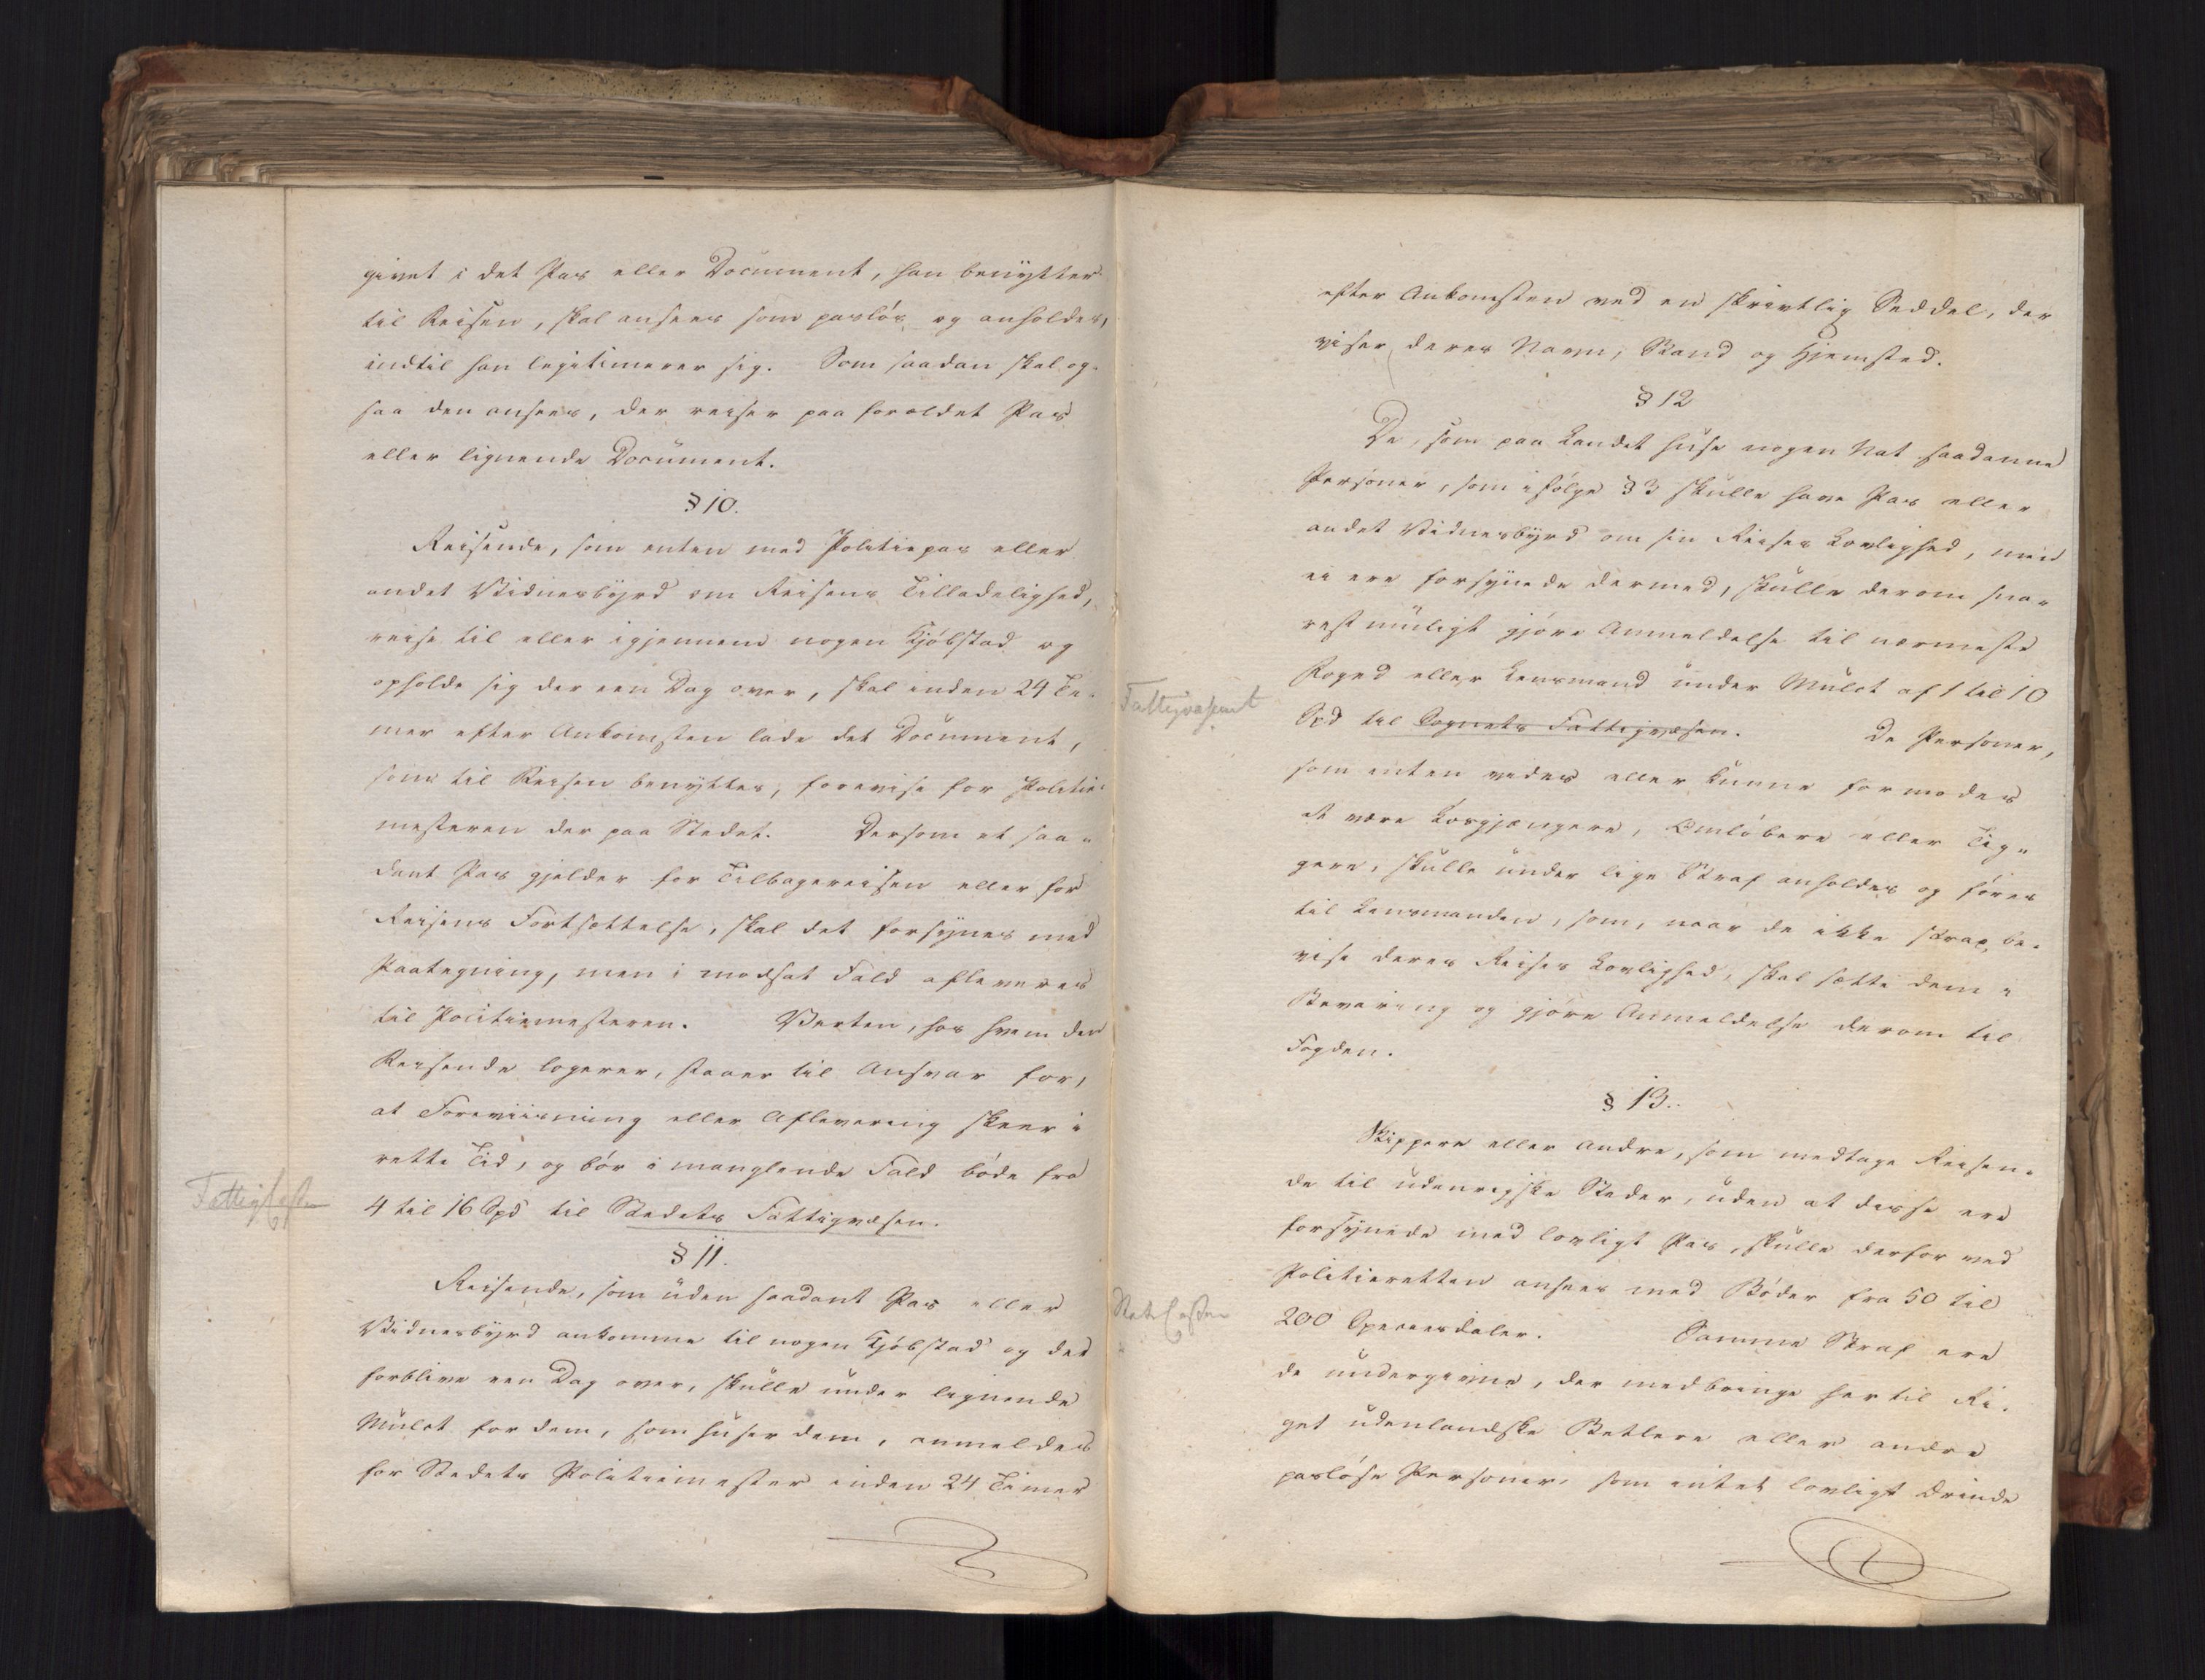 givet i det Pas eller Document, han benytter
til Reisen, skal ansees som pasløs og anholdes,
indtil han legitimerer sig. Som saadan skal og-
saa den ansees, der reiser paa forældet Pas
eller lignende Document.
§ 10.
Reisende, som enten med Politiepas eller
andet Vidnesbyrd om Reisens Tilladelighed,
reise til eller igjennem nogen Kjøbstad og
opholde sig der een Dag over, skal inden 24 Ti-
mer efter Ankomsten lade det Document,
som til Reisen benyttes, forevise for Politie-
mesteren der paa Stedet. Dersom et saa-
dant Pas gjelder for Tilbagereisen eller for
Reisens Fortsættelse, skal det forsynes med
Paategning, men i modsat Fald afleveres
til Politiemesteren. Verten, hos hvem den
Reisende logerer, staaer til Ansvar for,
at Foreviisning eller Aflevering skeer i
rette Tid, og bør i manglende Fald bøde fra
4 til 16 Spd til Stedets Fattigvæsen.
§ 11.
Reisende, som uden saadant Pas eller
Vidnesbyrd ankomme til nogen Kjøbstad og der
forblive een Dag over, skulle under lignende
Mulct for dem, som huser dem, anmeldes
for Stedets Politiemester inden 24 Timer
Fattigkassen
efter Ankomsten ved en skrivtlig Seddel, der
viser deres Navn, Stand og Hjemsted.
§ 12
De, som paa Landet huse nogen Nat saadanne
Personer, som ifølge § 3 skulle have Pas eller
andet Vidnesbyrd om sin Reises Lovlighed, men
ei ere forsynede dermed, skulle derom sna-
rest muligt gjøre Anmeldelse til nærmeste
Foged eller Lensmand under Mulct af 1 til 10
Spd til Sognets Fattigvæsen. De Personer,
som enten vides eller kunne formodes
at være Løsgjængere, Omløbere eller Tig-
gere, skulle under lige Straf anholdes og føres
til Lensmanden, som, naar de ikke strax be-
vise deres Reises Lovlighed, skal sætte dem i
Bevaring og gjøre Anmeldelse derom til
Fogden.
§ 13.
Skippere eller Andre, som medtage Reisen-
de til udenrigske Steder, uden at disse ere
forsynede med lovligt Pas, skulle derfor ved
Politieretten ansees med Bøder fra 50 til
200 Speciesdaler. Samme Straf ere
de undergivne, der medbringe her til Ri-
get udenlandske Betlere eller andre
pasløse Personer, som intet lovligt Ærinde
Fattigvæsenet
Statskassen